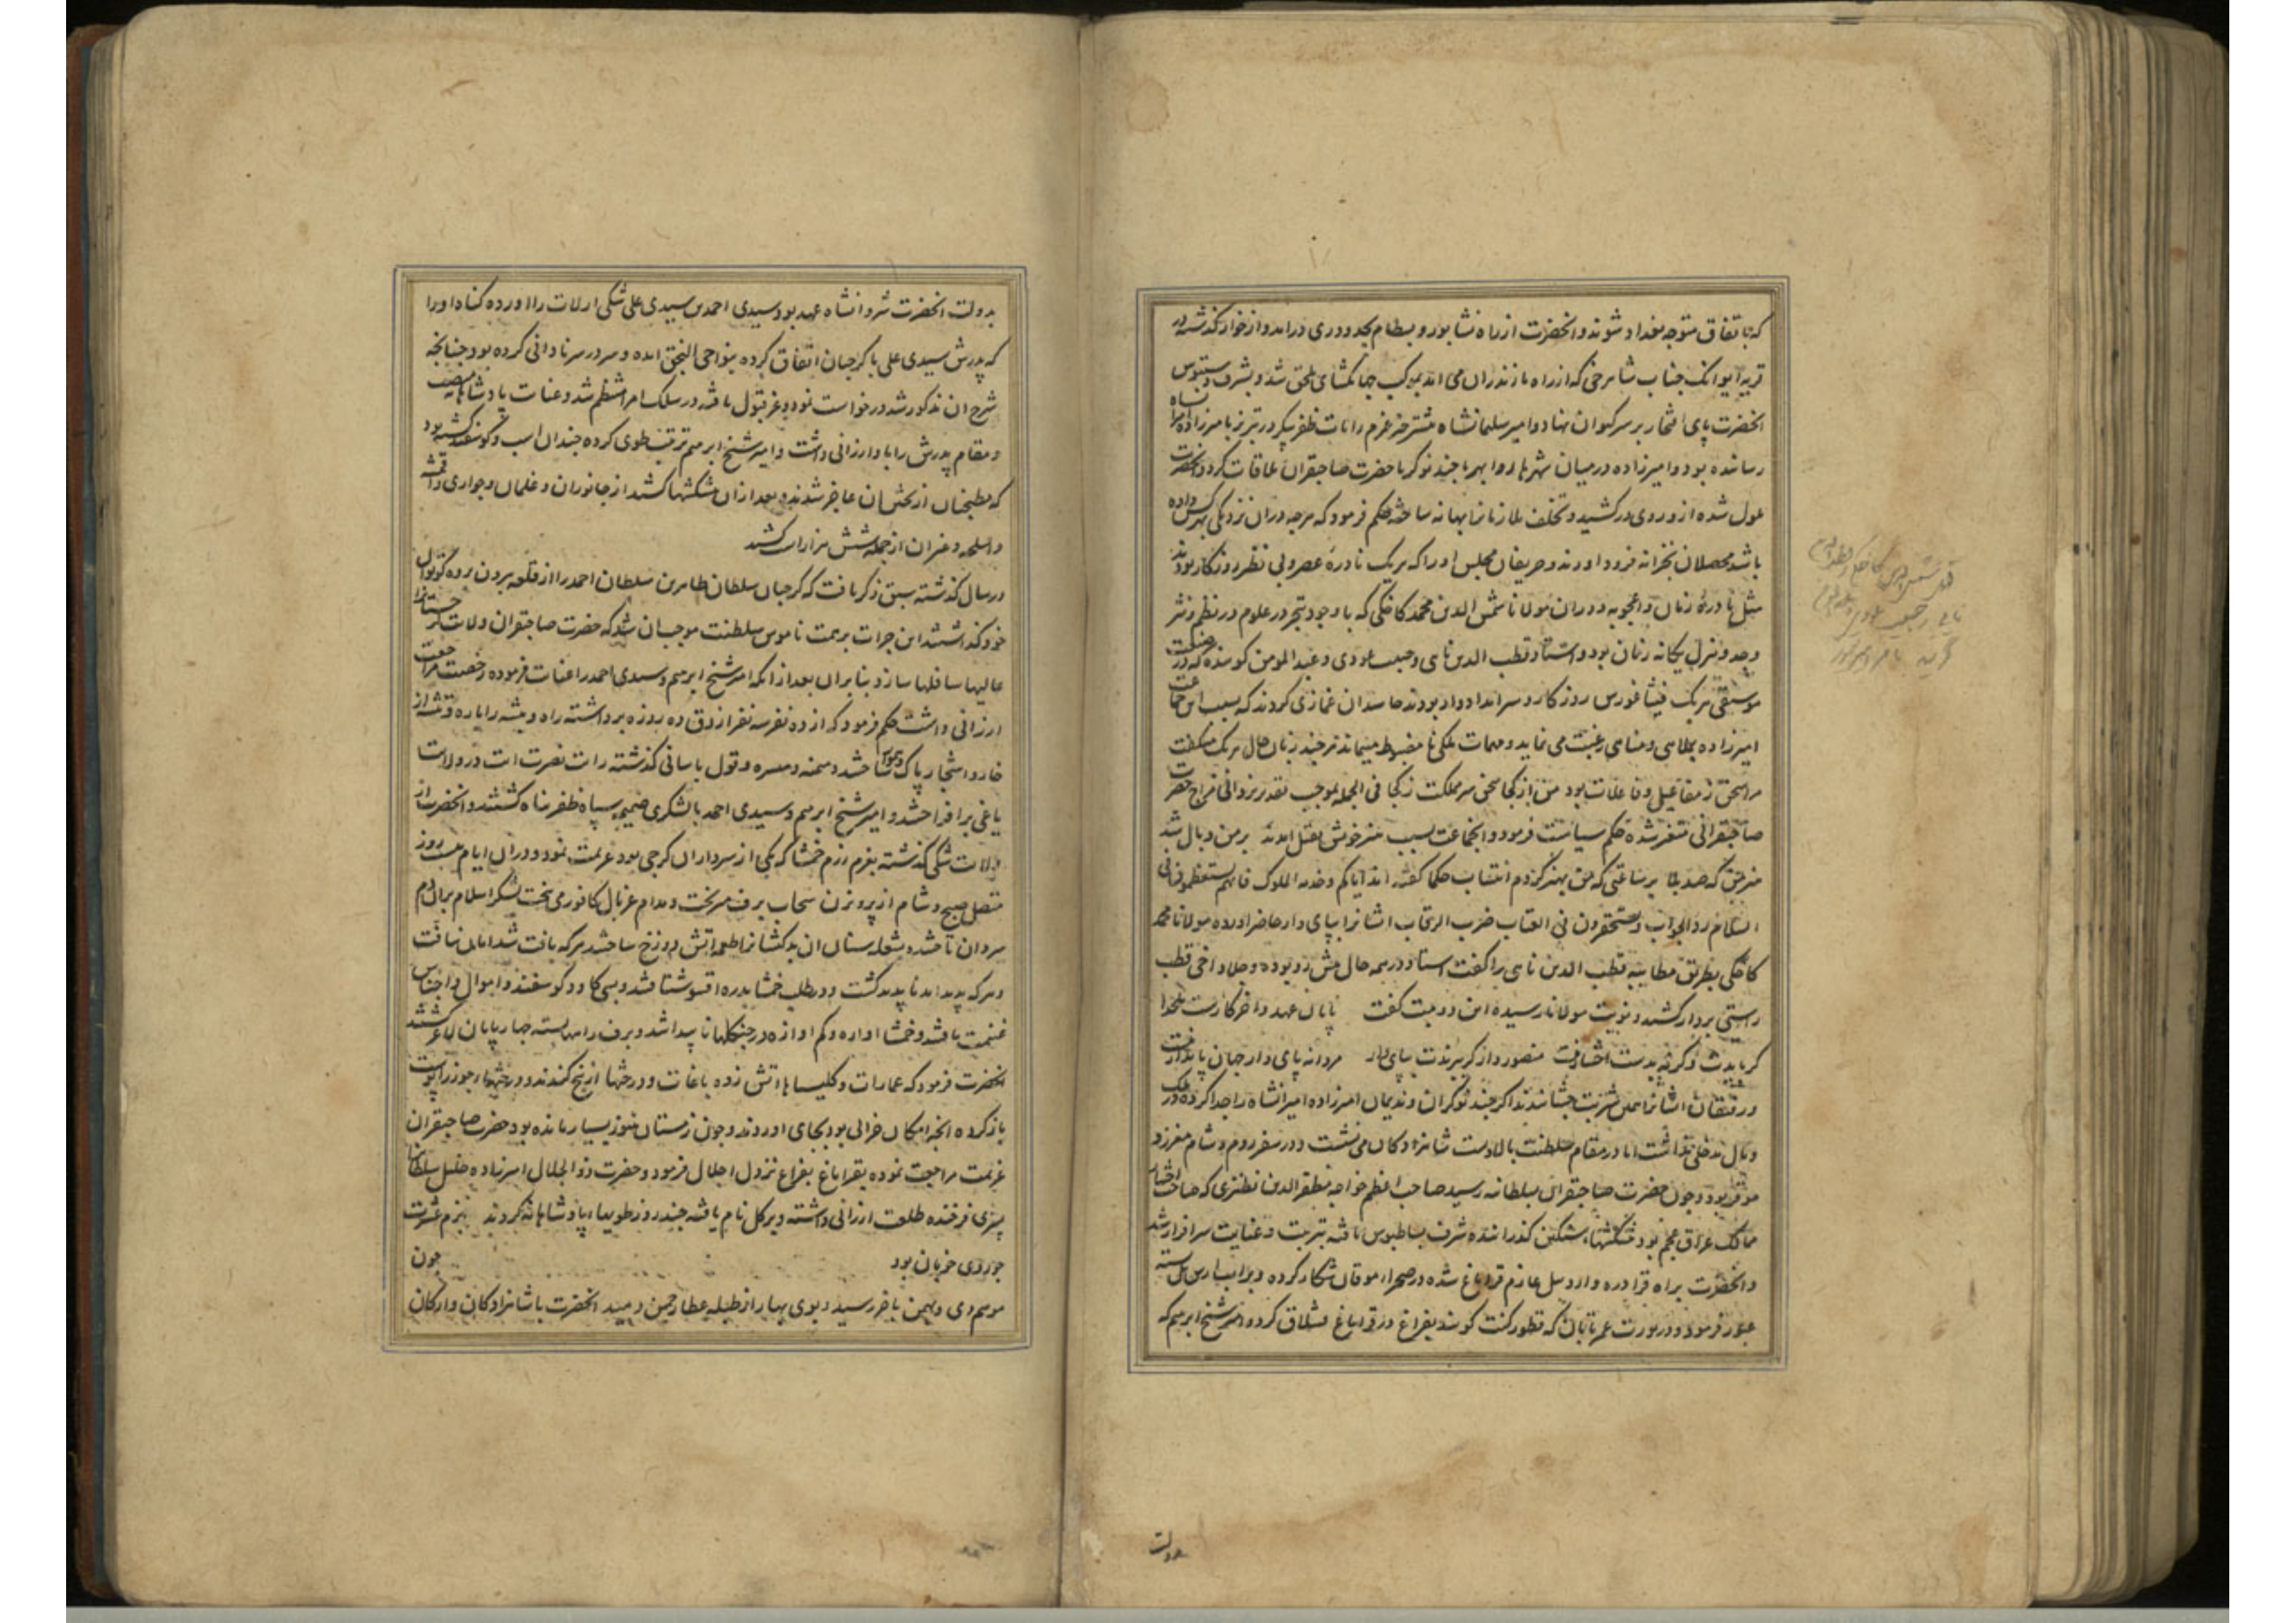 که باتفاق متوجه بغداد شوند و آنحضرت از راه نشابور و بسطام بحدود ری درآمد و از خوار گذشته در
قریه ایوانک جناب شاهرخی که از راه مازندران می آمد بموکب جهانگشای ملحق شد و بشرف دستبوس
آنحضرت پای افتخار بر سر کیوان نهاد و امیر سلیمانشاه پیشتر خبر عزم رایات ظفر پیکر در تبریز بامیرزاده
رسانده بود و امیرزاده در میان شهریار و ابهر با چند نوکر با حضرت صاحبقران ملاقات کرد و آنحضرت
ملول شده ازو روی درکشید و تخلف ملازمان را بهانه ساخته حکم فرمود که هرچه در آن نزدیکی بهر کس داده
باشد محصلان بخزانه فرود آورند و حریفان مجلس او را که هریک نادره عصر و بی نظیر روزگار بودند
مثل نادره زمان و اعجوبه دوران مولانا شمس الدین محمد کاخکی که با وجود تبحر در علوم در نظم و نثر
و جد و هزل یگانه زمان بود و استاد قطب الدین نایی و حبیب عودی و عبدالمومن گوینده که در
موسیقی هریک فیثاغورس روزگار و سرآمد ادوار بودند حاسدان غمازی کردند که بسبب این جماعت
امیرزاده بملاهی و مناهی رغبت می نماید و مهمات ملکی نامضبوط میماند هرچند زبان حال هریک میگفت
مرا سخن ز مفاعیل و فاعلات بود من از کجا سخن سر مملکت ز کجا فی الجمله بموجب تقدیر یزدانی مزاج حضرت
صاحبقرانی متغیر شده حکم سیاست فرمود و آنجماعت بسبب هنر خویش بقتل آمدند بر من وبال شد
هنر من که صد بلا بر ساعتی که من بهنر کردم انتساب حکما گفته اند ایاکم و خدمة الملوک فانهم یستعظمون فی
السلام رد الجواب و یستحقرون فی العقاب ضرب الرقاب ایشانرا بپای دار حاضر آورده مولانا محمد
کاخکی بطریق مطایبه قطب الدین نایی را گفت استاد در همه حال پیش رو بوده و جلاد اخی قطب
راستی بر دار کشید و نوبت مولانا رسیده این دو بیت گفت پایان عهد و آخر کارست ملحدا
گر بایدت وگرنه بدست اختیار نیست منصوروار گر ببرندت بپای دار مردانه پای دار جهان پایدار نیست
و رفیقان ایشانرا همین شربت چشاندند اگرچند نوکران و ندیمان امیرزاده امیرانشاه را جدا کرده در ملک
و مال مدخلی نداشت اما در مقام سلطنت بالادست شاهزادگان می نشست و در سفر روم و شام معزز و
موقر بود و چون حضرت صاحبقران بسلطانیه رسید صاحب اعظم خواجه مظفر الدین نطنزی که صاحب اختیار
ممالک عراق عجم بود پیشکشهای سنگین گذرانده شرف بساطبوس یافته بتربیت و عنایت سرافراز شد
و آنحضرت براه قرادره و اردبیل عازم قراباغ شده در صحراء موقان شکار کرده و بر آب ارس پل بسته
عبور فرمود و در یورت عمر تابان که قطورکنت گویند بفراغ در قراباغ قشلاق کرد و امیر شیخ ابرهیم که
بدولت
بدولت آنحضرت شروانشاه عهد بود سیدی احمد بن سیدی علی شکی ارلات را آورده گناه او را
که پدرش سیدی علی با گرجیان اتفاق کرده بنواحی النجق آمده و سر در سر نادانی کرده بود چنانچه
شرح آن مذکور شد درخواست نمود و عز قبول یافته در سلک امرا منتظم شد و عنایت پادشاهانه منصب
و مقام پدرش را باو ارزانی داشت و امیر شیخ ابرهیم ترتیب طوی کرده چندان اسب و گوسفند کشته بود
که مطبخیان از پختن آن عاجز شدند و بعد از آن پیشکشها کشید از جانوران و غلمان و جواری و اقمشه
و اسلحه و غیر آن از جمله شش هزار اسب کشید
در سال گذشته سبق ذکر یافت که گرجیان سلطان طاهر بن سلطان احمد را از قلعه بیرون برده کوتوال
خود گذاشتند این جرات بر هتک ناموس سلطنت موجب آن شد که حضرت صاحبقران ولایت گرجستانرا
عالیها سافلها سازد بنابران بعد از آنکه امیر شیخ ابرهیم و سیدی احمد را عنایت فرموده رخصت مراجعت
ارزانی داشت حکم فرمود که از ده نفر سه نفر آزوق ده روزه برداشته راه و بیشه را باره و تیشه از
خار و اشجار پاک و هموار ساختند و میمنه و میسره و قول باسانی گذشته رایت نصرت آیت در ولایت
یاغی برافراختند و امیر شیخ ابرهیم و سیدی احمد با لشکری ضمیمه سپاه ظفرپناه گشتند و آنحضرت از
ولایت شکی گذشته بعزم رزم خمشا که یکی از سرداران گرجی بود عزیمت نمود و در آن ایام بیست روز
متصل صبح و شام از پرویزن سحاب برف میریخت و مدام غربال کافوری می بیخت لشکر اسلام بران قوم
سروان تاختند و شعله سنان آن بدکیشانرا طعمه آتش دوزخ ساختند هرکه یافت شد امان نیافت
و هرکه پدید آمد ناپدید گشت و در طلب خمشا بدره اقسو شتافتند و بسی گاو و گوسفند و اموال و اجناس
غنیمت یافتند و خمشا آواره و گم آوازه در جنگلها ناپیدا شد و برف راهها بسته چهارپایان لاغر گشتند
آنحضرت فرمود که عمارات و کلیساها را آتش زده باغات و درختها از بیخ کندند و درختهاء جوز را پوست
باز کرده آنچه امکان خرابی بود بجای آوردند و چون زمستان هنوز بسیار مانده بود حضرت صاحبقران
عزیمت مراجعت نموده بقراباغ بفراغ نزول اجلال فرمود و حضرت ذوالجلال امیرزاده خلیل سلطانرا
پسری فرخنده طلعت ارزانی داشته و برکل نام یافته چند روز طویهاء پادشاهانه کردند بزم عشرت
چو روی خوبان بود چون
موسم دی و بهمن بآخر رسید و بوی بهار از طبله عطار چمن دمید آنحضرت با شاهزادگان و ارکان